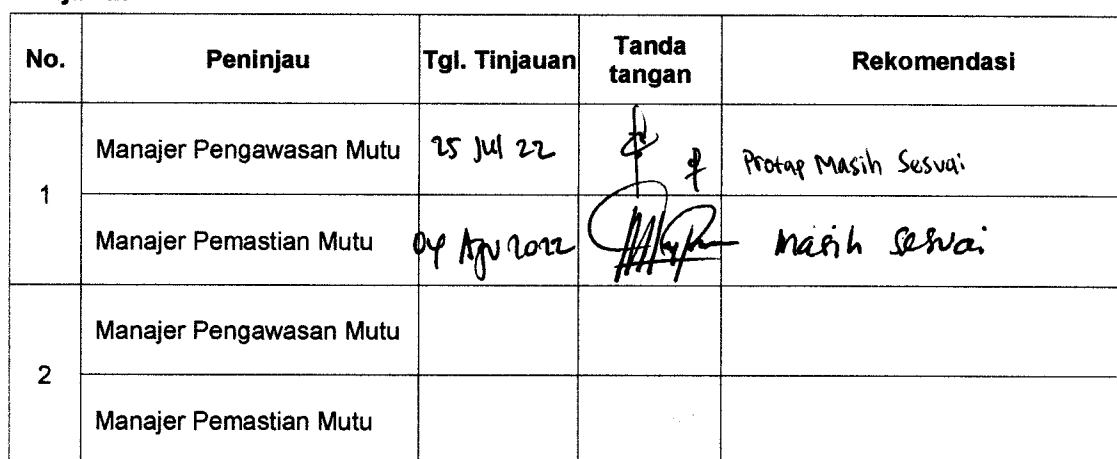 No. Peninjau Tgl. Tinjauan Tanda tangan Rekomendasi
1
Manajer Pengawasan Mutu 25 Jul 22 Protap Masih Sesuai
Manajer Pemastian Mutu 04 Agu 2022 Masih sesuai
2
Manajer Pengawasan Mutu
Manajer Pemastian Mutu